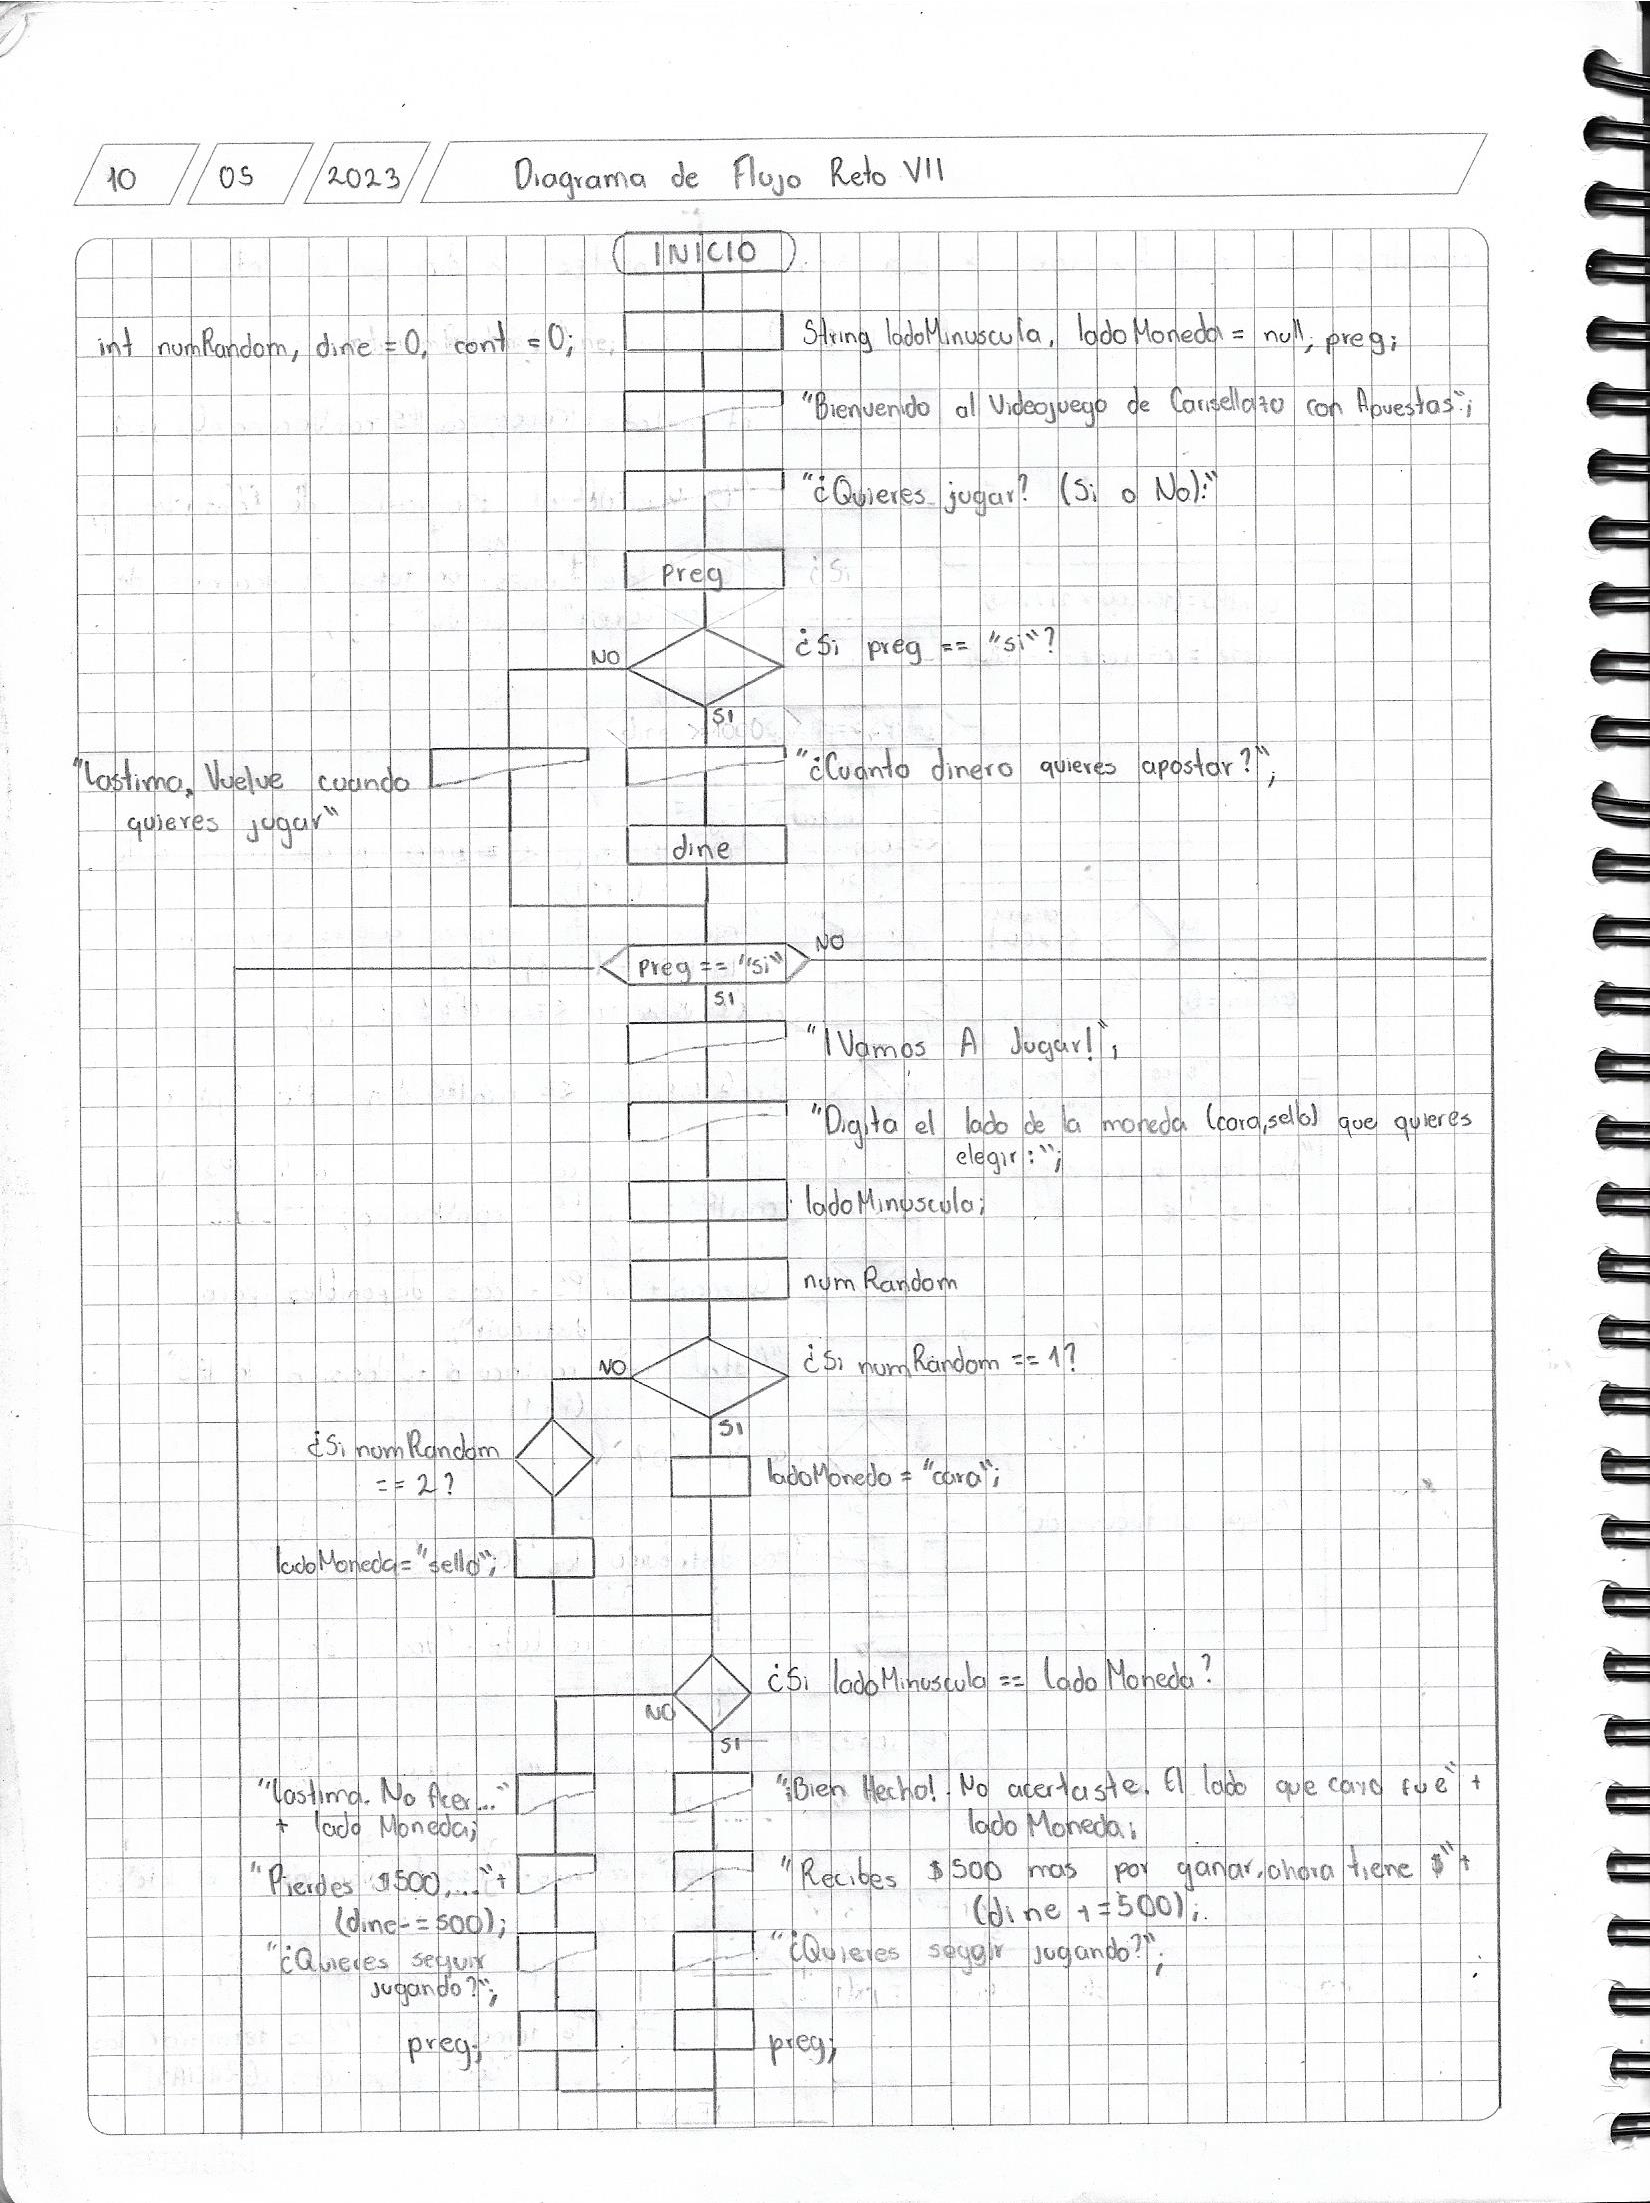 10 05 2023 Diagrama de Flujo Reto VII
INICIO
int numRandom, dine = 0, cont = 0;
String ladoMinuscula, ladoMoneda = null, preg;
"Bienvenido al Videojuego de Carisellazo con Apuestas";
"¿Quieres jugar? (Si o No):"
preg
¿Si preg == "si"?
NO
SI
"Lastima. Vuelve cuando
quieres jugar"
"¿Cuanto dinero quieres apostar?";
dine
preg == "si"
NO
SI
"¡Vamos A Jugar!";
"Digita el lado de la moneda (cara,sello) que quieres
elegir:";
ladoMinuscula;
numRandom
¿Si numRandom == 1?
NO
SI
¿Si numRandom
== 2?
ladoMoneda = "cara";
ladoMoneda="sello";
¿Si ladoMinuscula == ladoMoneda?
NO
SI
"Lastima. No Acer..."
+ lado Moneda;
"¡Bien Hecho!. No acertaste. El lado que cayo fue" +
lado Moneda;
"Pierdes $500,..."+
(dine-=500);
"Recibes $500 mas por ganar, ahora tiene $"+
(dine +=500);
"¿Quieres seguir
jugando?";
"¿Quieres seguir jugando?";
preg;
preg;